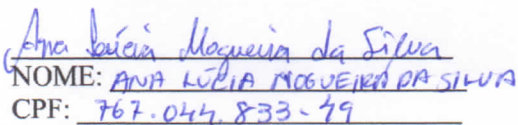 Ana Lúcia Nogueira da Silva
NOME: ANA LÚCIA NOGUEIRA DA SILVA
CPF: 767.044.833-49